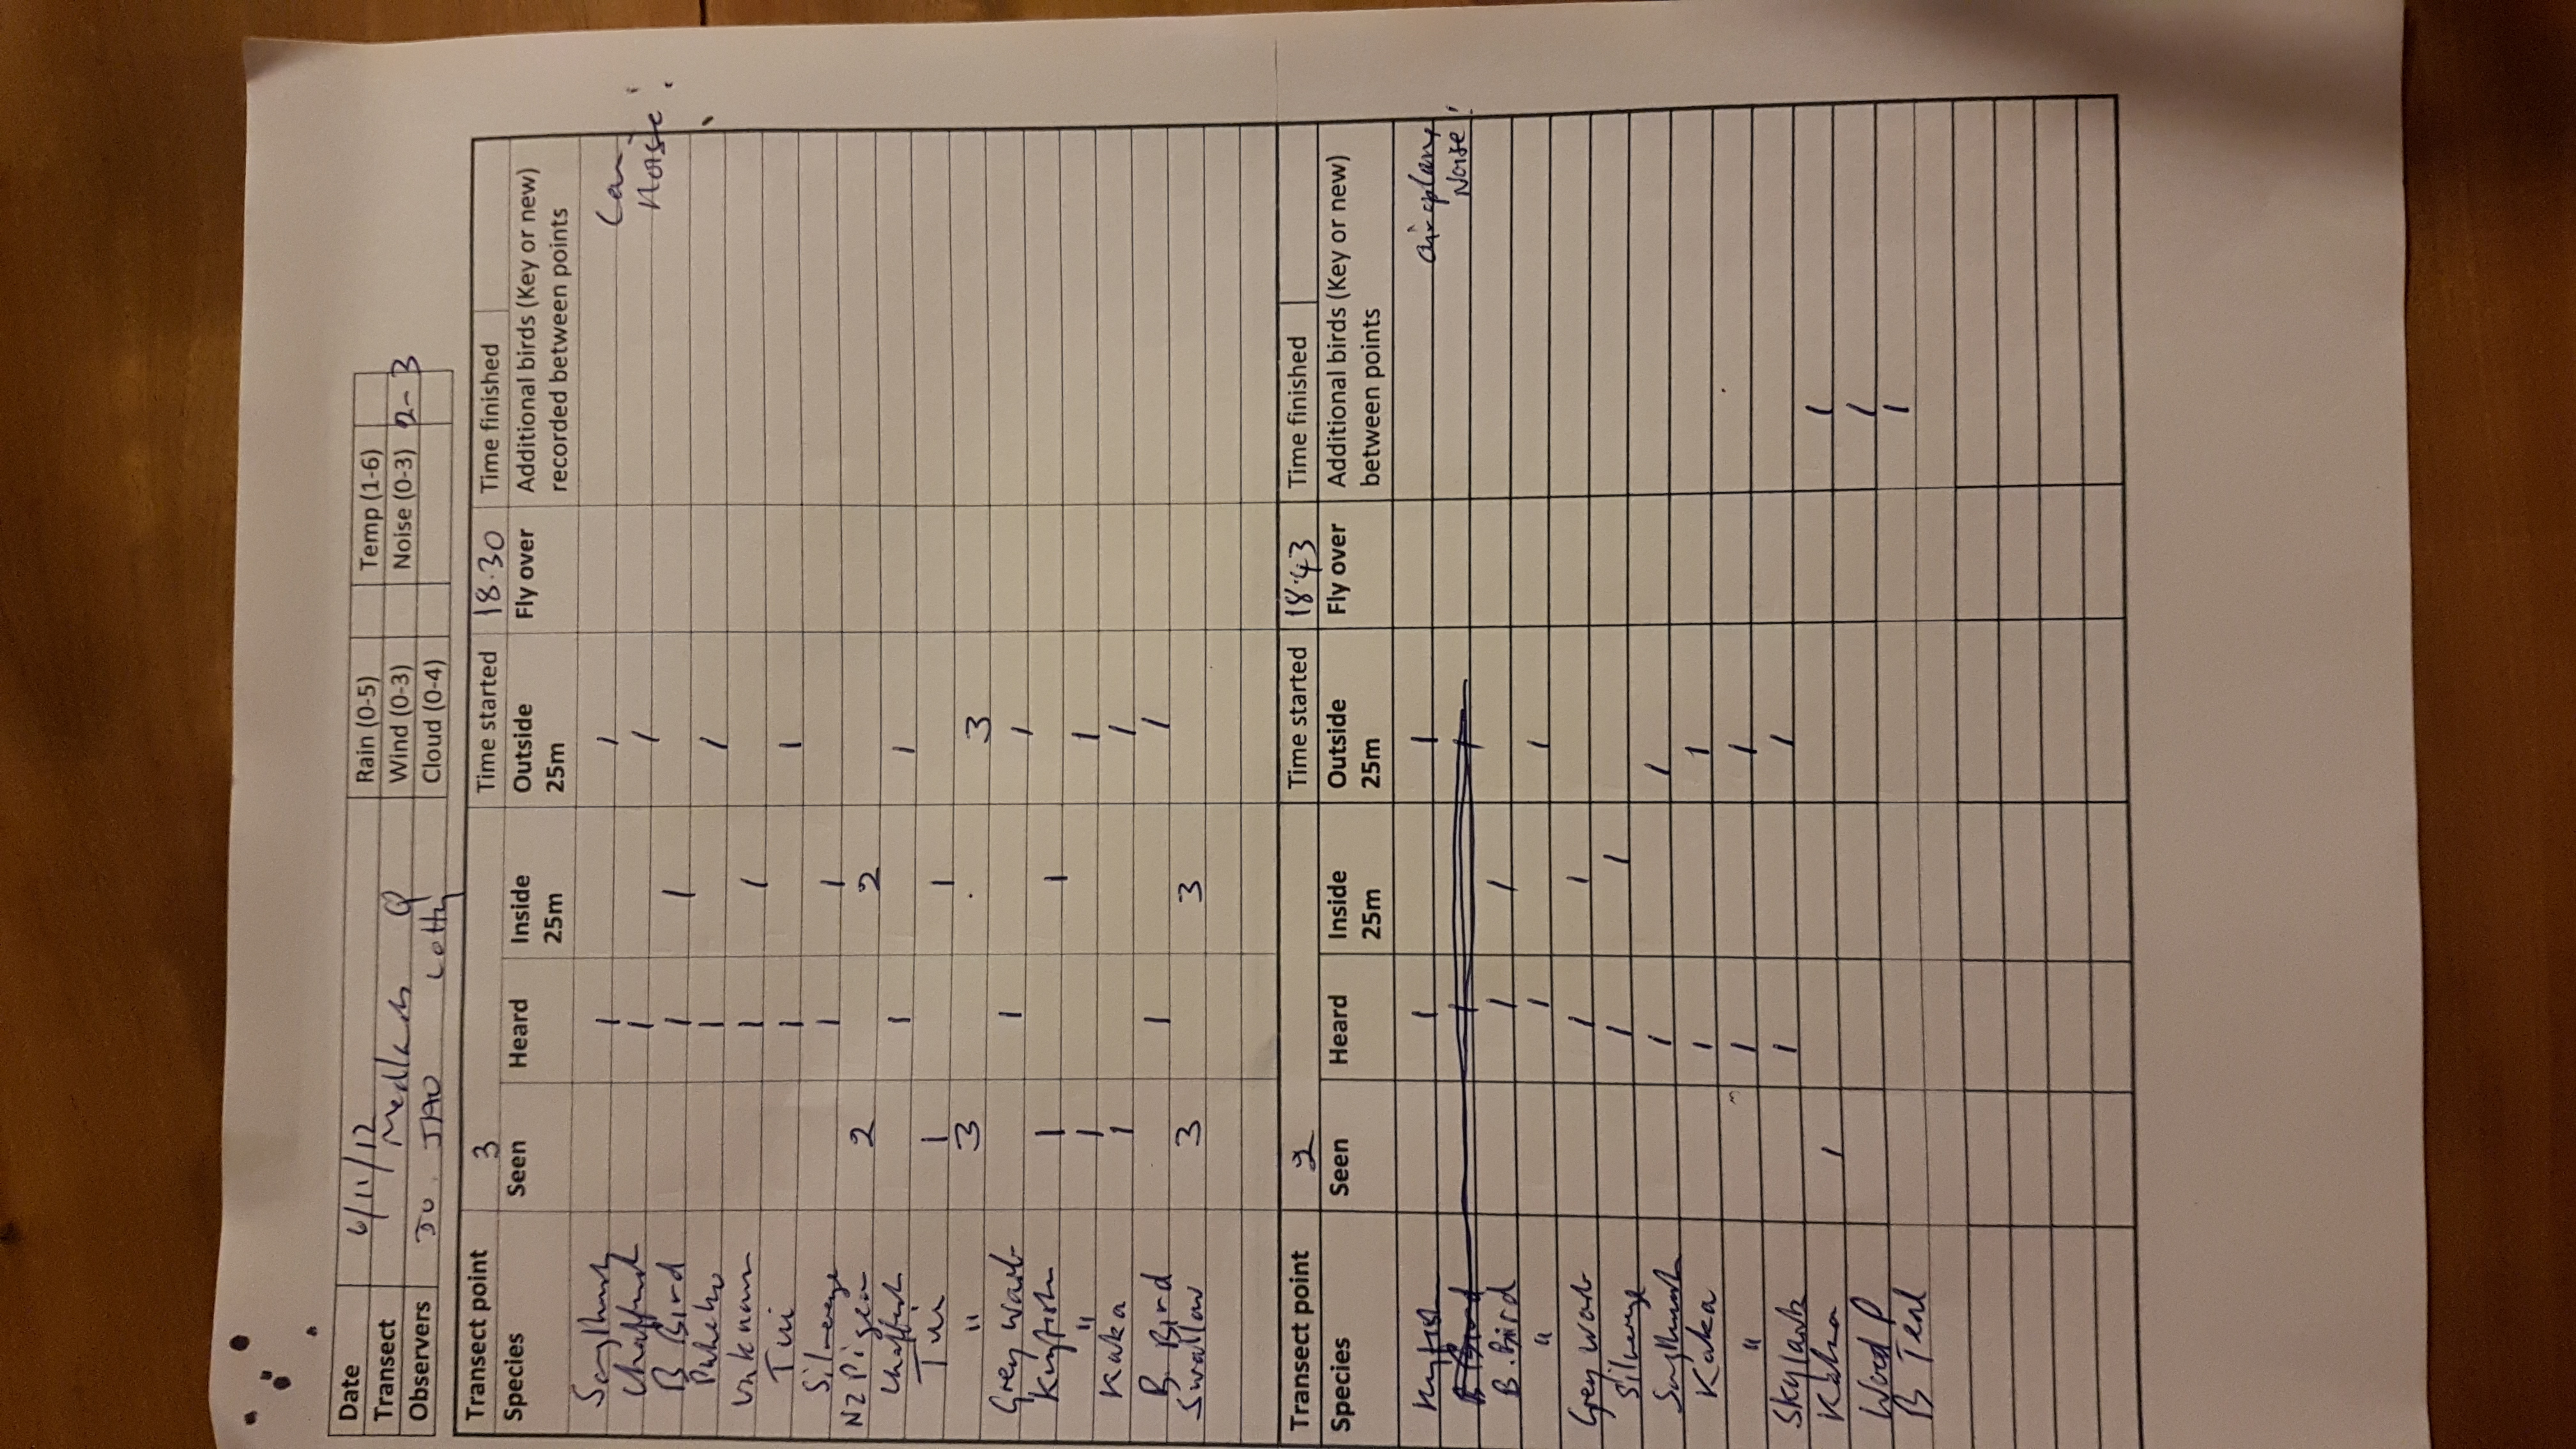 Date 6/11/12 Rain (0-5) Temp (1-6)
Transect Medlands Q Wind (0-3) Noise (0-3) 2-3
Observers JO. Lotty Cloud (0-4)
Transect point 3 Time started 18.30 Time finished
Species Seen Heard Inside 25m Outside 25m Fly over Additional birds (Key or new) recorded between points
Songthrush 1 1 Car
Chaffinch 1 1 Noise!
B Bird 1 1
Pukeko 1 1
Unknown 1 1
Tui 1 1
Silvereye 1 1
NZ Pigeon 2 2
Chaffinch 1 1
Tui 1 1
" 3 3
Grey Warb 1 1
Kingfisher 1 1
" 1 1
Kaka 1 1
B. Bird 1 1
Swallow 3 3
Transect point 2 Time started 18.43 Time finished
Species Seen Heard Inside 25m Outside 25m Fly over Additional birds (Key or new) between points
Kingfish 1 1 airoplane
B Bird 1 1 Noise!
B. Bird 1 1
" 1 1
Grey Warb 1 1
Silvereye 1 1
Songthrush 1 1
Kaka 1 1
" 1 1
Skylark 1 1
Kaka 1 1
Wood P 1
B Teal 1